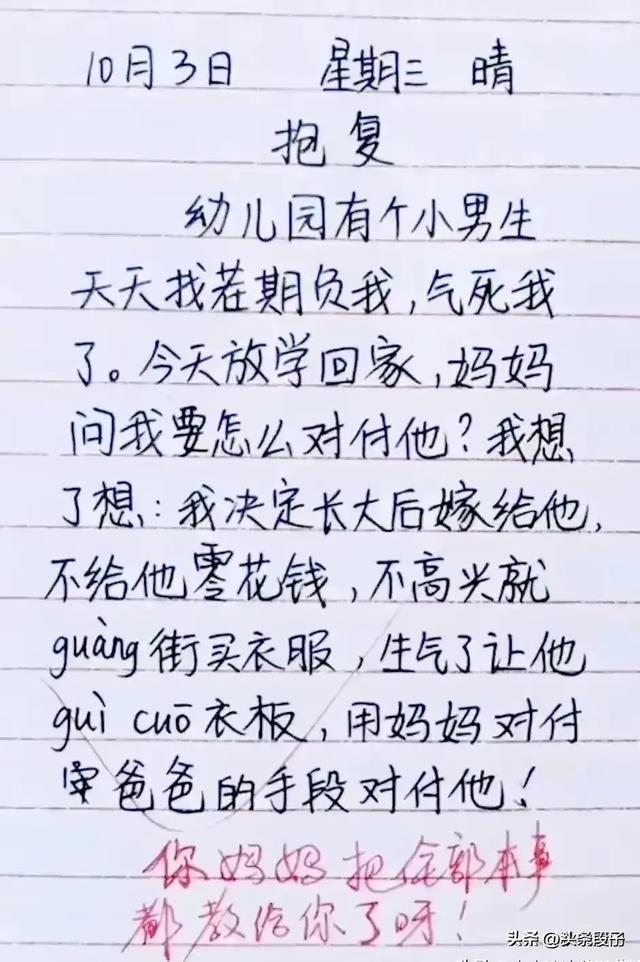 10月3日 星期三 晴
抱复
幼儿园有个小男生
天天找茬期负我,气死我
了。今天放学回家,妈妈
问我要怎么对付他?我想
了想:我决定长大后嫁给他,
不给他零花钱,不高兴就
guàng街买衣服,生气了让他
guì cuō衣板,用妈妈对付
爸爸的手段对付他!
你妈妈把全部本事
都教给你了呀!
头条 @头条段子